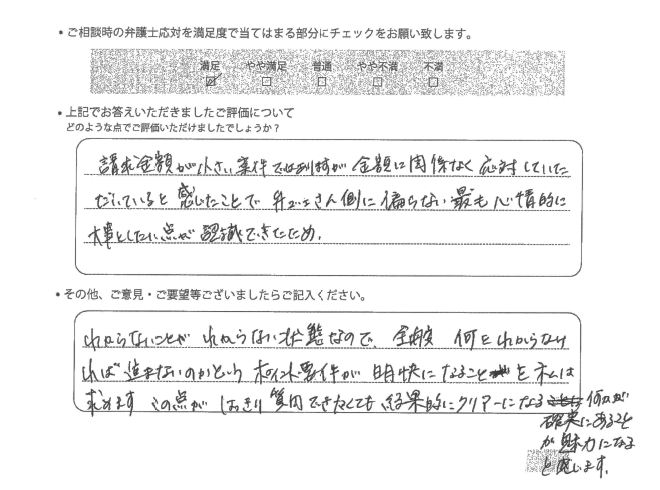 ・ご相談時の弁護士応対を満足度で当てはまる部分にチェックをお願い致します。
満足 やや満足 普通 やや不満 不満
・上記でお答えいただきましたご評価について
どのような点でご評価いただけましたでしょうか？
請求金額が小さい案件ではありますが 金額に関係なく 応対していた
だいていると 感じたことで 弁護士さん側に 偏らない 最も 心情的に
大事としたい点が 認識できたため。
・その他、ご意見・ご要望等ございましたらご記入ください。
わからないことが わからない状態なので、全般 何をわからなけ
れば 進めないのかという ポイント要件が 明快になること を 私は
求めます この点が はっきり 質問できなくても 結果的にクリアーになる 何かが
確実にあること
が 魅力になる
と感じます。